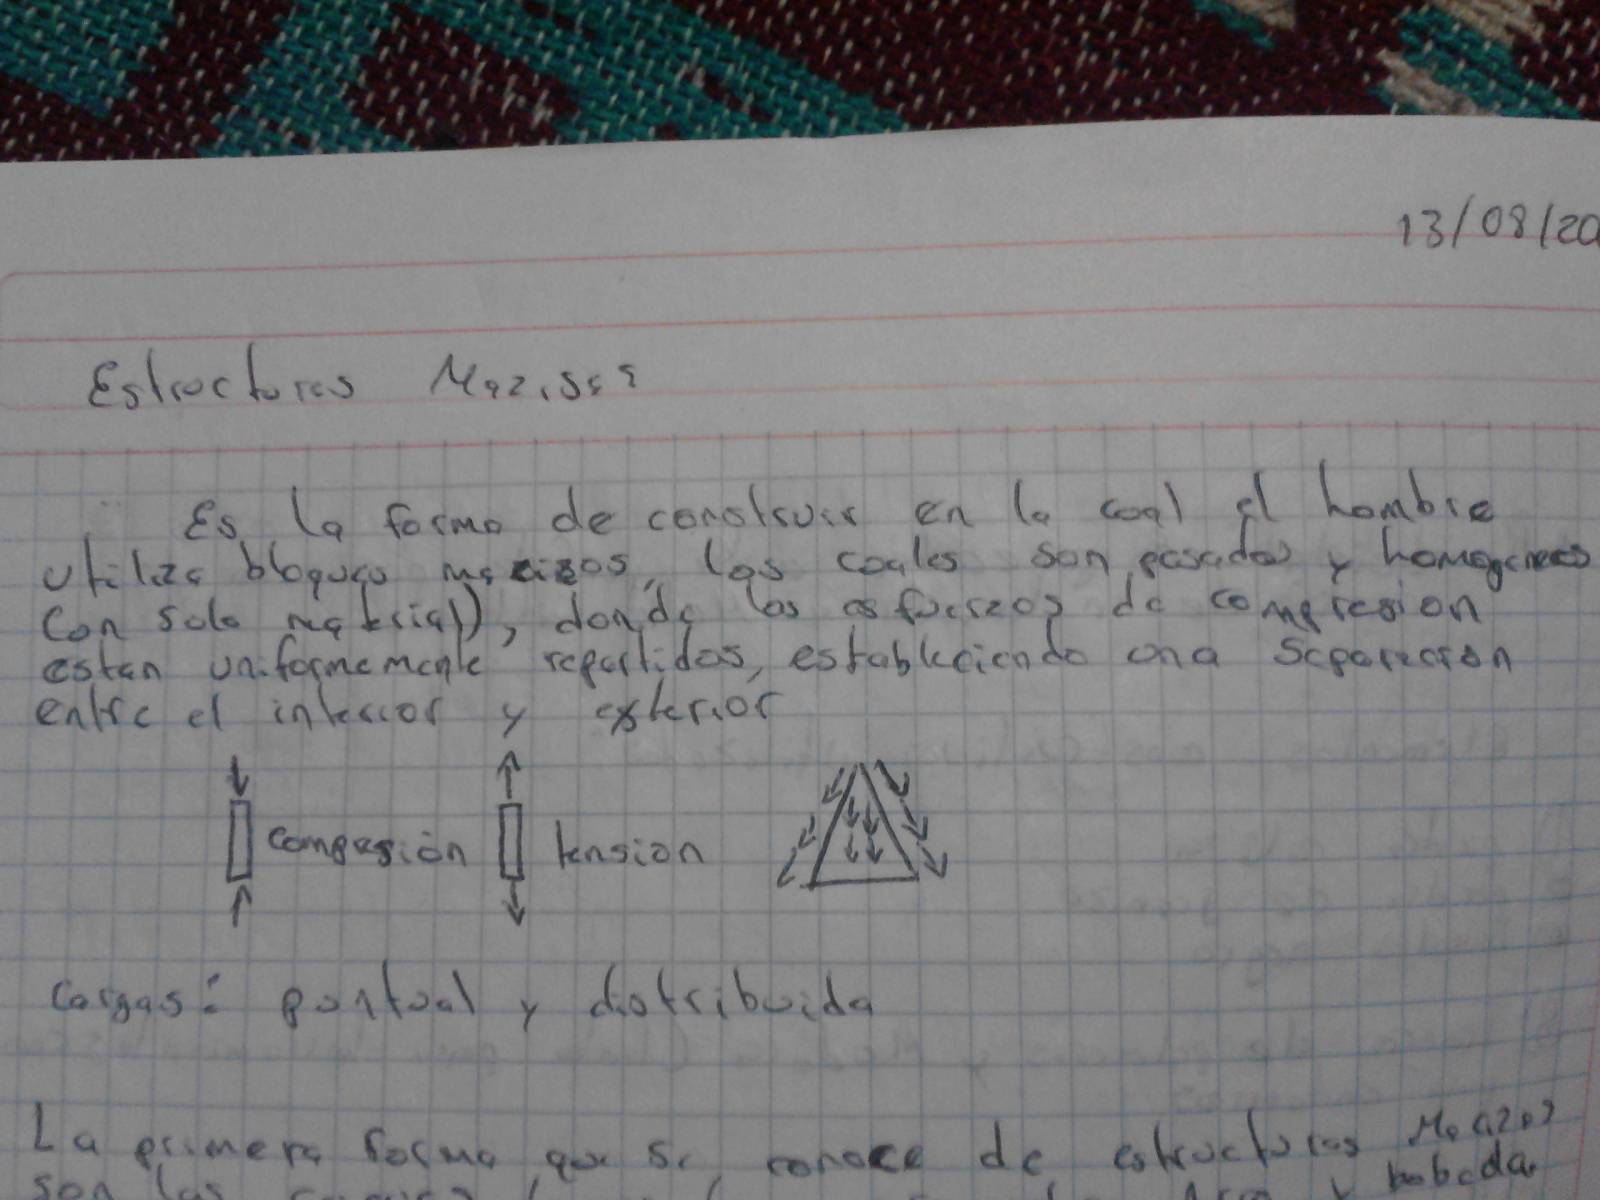 13/08/20
Estructuras Mazisas
Es la forma de construir en la cual el hombre
utiliza bloques macizos, los cuales son pesados y homogeneos
con solo material), donde los esfuerzos de compresion
estan uniformemente repartidos, estableciendo una separacion
entre el interior y exterior
compesión tension
cargas: puntual y distribuida
La primera forma que se conoce de estructuras
son las y bobeda